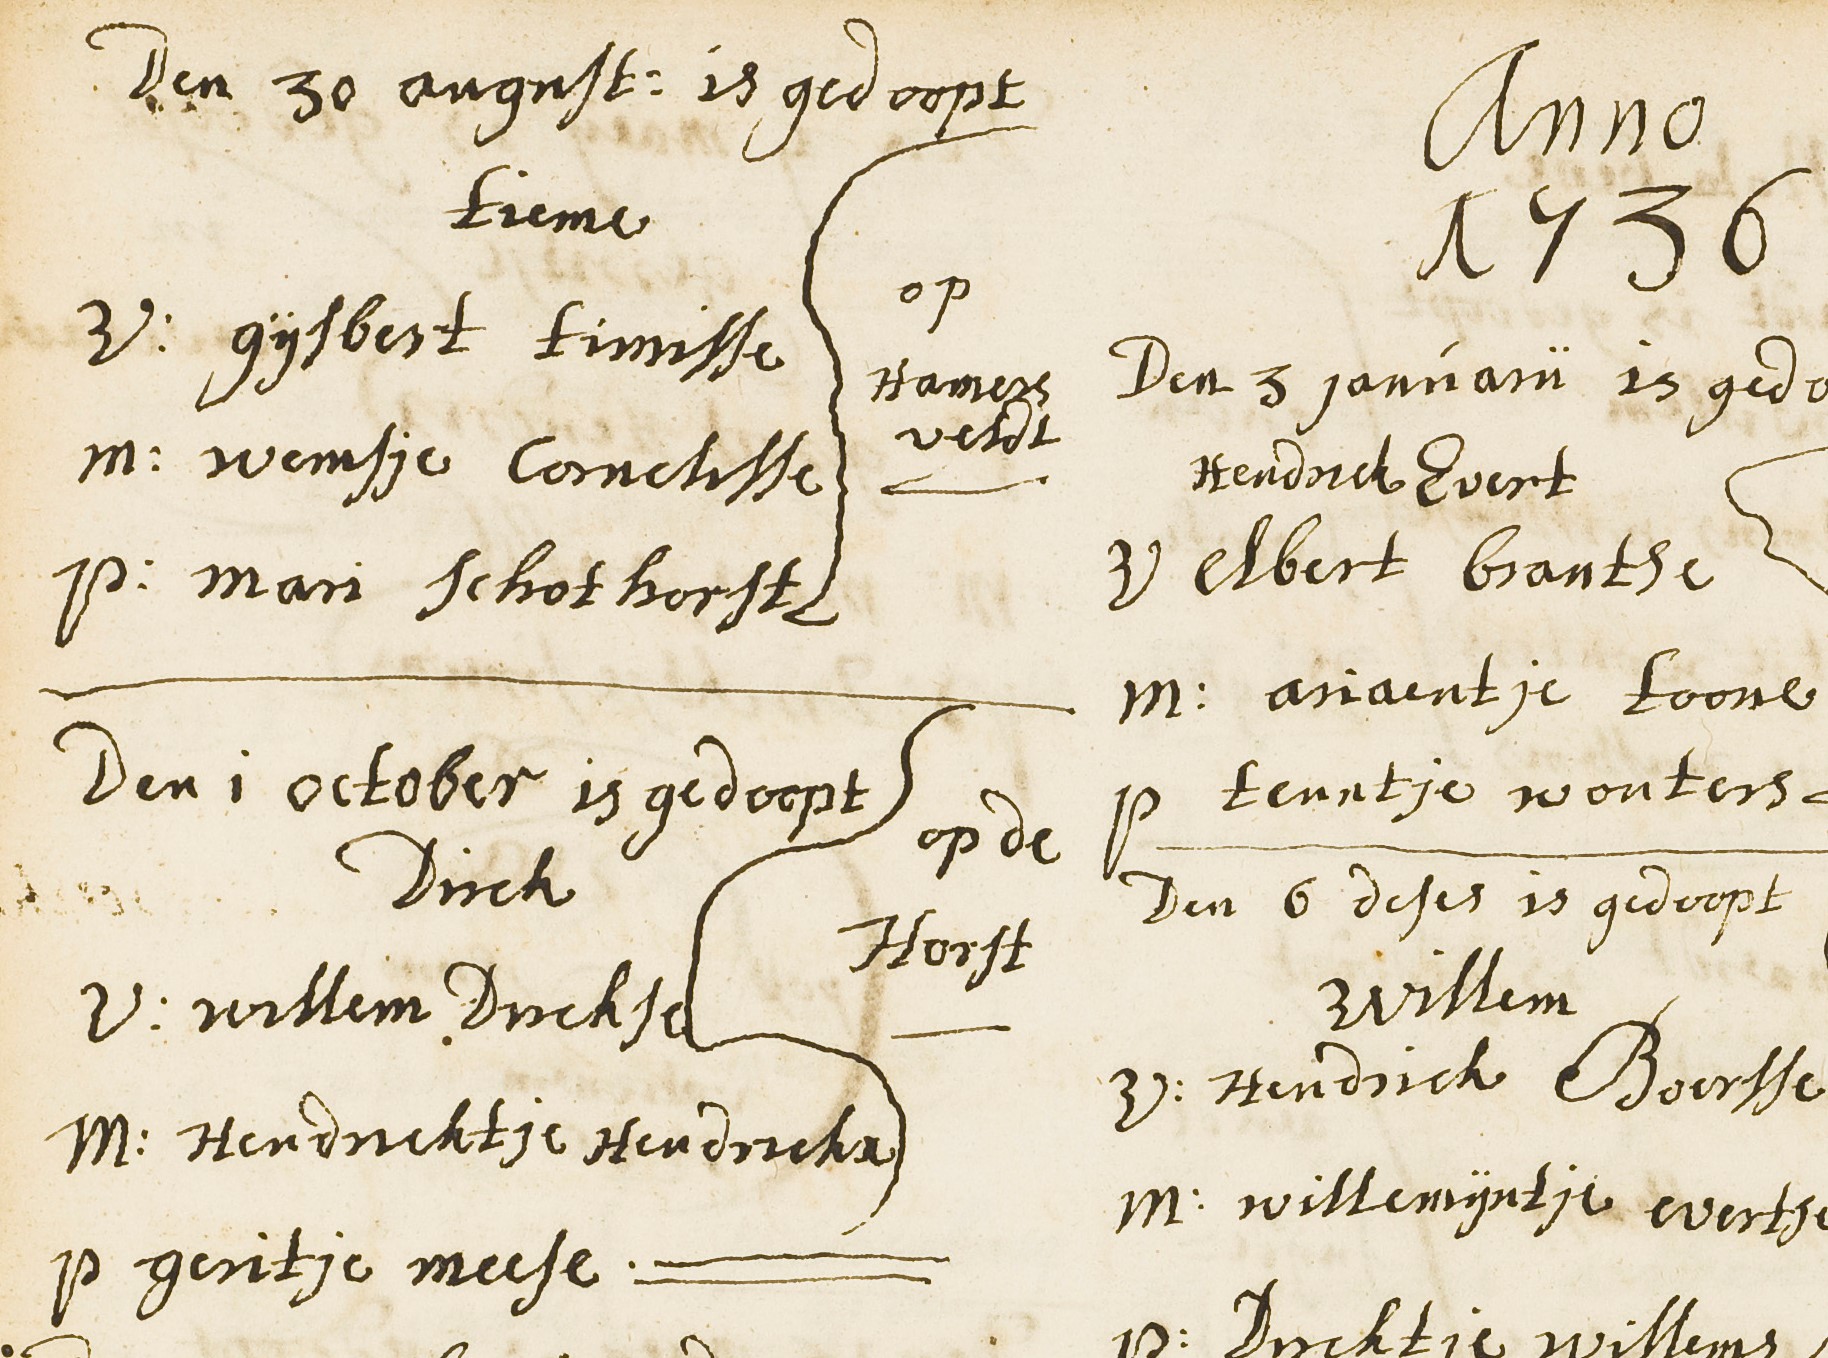 Den 30 august: is gedoopt
tieme
V: gijsbert timisse
op
Hamers
veldt
m: wemsje Cornelisse
p: mari schothorst
Den 1 october is gedoopt
Dirck
op de
Horst
V: willem Dirckse
M: Hendricktje Hendrickx
p geritje meese
Anno
1736
Den 3 januarii is gedo
Hendrick Evert
V elbert brantse
m: ariaentje toone
p teuntje wouters
Den 6 deses is gedoopt
Willem
V: Hendrick Boersse
M: willemijntje evertse
p: Dircktje willems